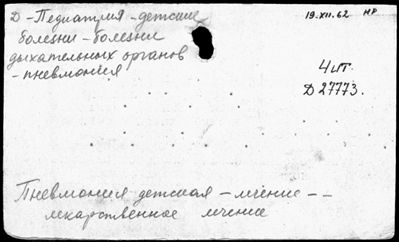 Д - Педиатрия - детские
болезни - болезни
дыхательных органов
- пневмония
19.XII.62 НР
4 ит.
Д 27773.
Пневмония детская - лечение - -
лекарственное лечение